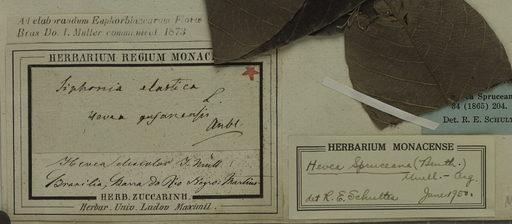 Ad elaborandum Euphorbiacearum Florae
Bras Do. I. Müller communicat. 1873
HERBARIUM REGIUM MONAC
Siphonia elastica
L.
Hevea gujanensis
Aubl.
Hevea discolor J. Müll.
Brasilia, Barra do Rio Negro; Martius
HERB. ZUCCARINII.
Herbar. Univ. Ludov Maximil.
Spruceana
34 (1865) 204.
Det. R. E. SCHULT
HERBARIUM MONACENSE
Hevea Spruceana (Benth.)
Muell.-Arg.
det R. E. Schultes